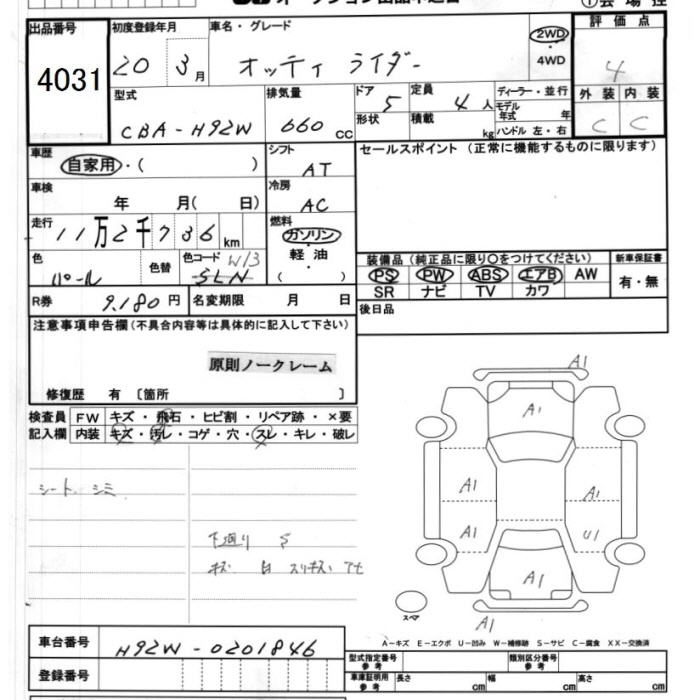 出品番号 初度登録年月 車名・グレード 評価点
4031 20 3月 オッティ ライダー 2WD・4WD 4
型式 排気量 ドア 定員 ディーラー・並行 外装 内装
CBA-H92W 660cc 5 4人 モデル年式 年 C C
形状 積載 kg ハンドル 左・右
車歴 シフト セールスポイント (正常に機能するものに限ります)
自家用・( ) AT
車検 冷房
年 月( 日) AC
走行 燃料
11万2千736km ガソリン
色 色替 色コード W13 軽油
パール SLN ( )
装備品 (純正品に限り○をつけてください) 新車保証書
PS PW ABS エアB AW 有・無
SR ナビ TV カワ
R券 9,180円 名変期限 月 日 後日品
注意事項申告欄(不具合内容等は具体的に記入して下さい)
原則ノークレーム
修復歴 有 〔箇所 〕
検査員 FW キズ・飛石・ヒビ割・リペア跡・×要
記入欄 内装 キズ・汚レ・コゲ・穴・スレ・キレ・破レ
シート シミ
下廻り S
キズ
A1
A1
A1 A1
A1 U1
A1
スペア A1
A-キズ E-エクボ U-凹み W-補修跡 S-サビ C-腐食 XX-交換済
車台番号 H92W-0201846
登録番号
型式指定番号 参考 類別区分番号 参考
車庫証明用 参考 長さ cm 幅 cm 高さ cm